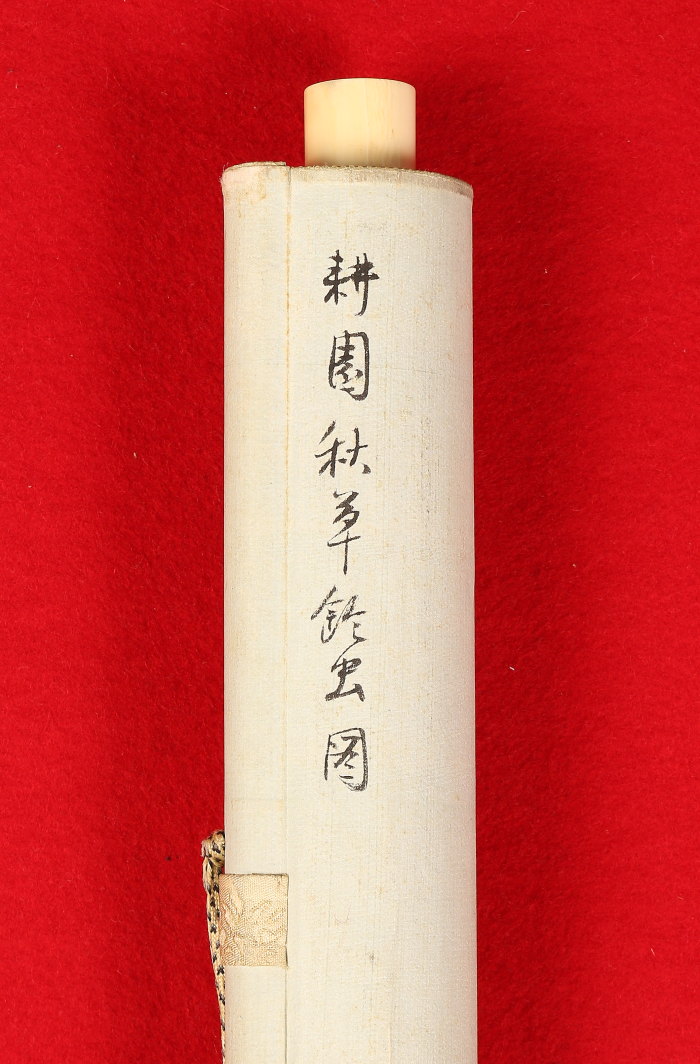 耕園秋草鈴虫図